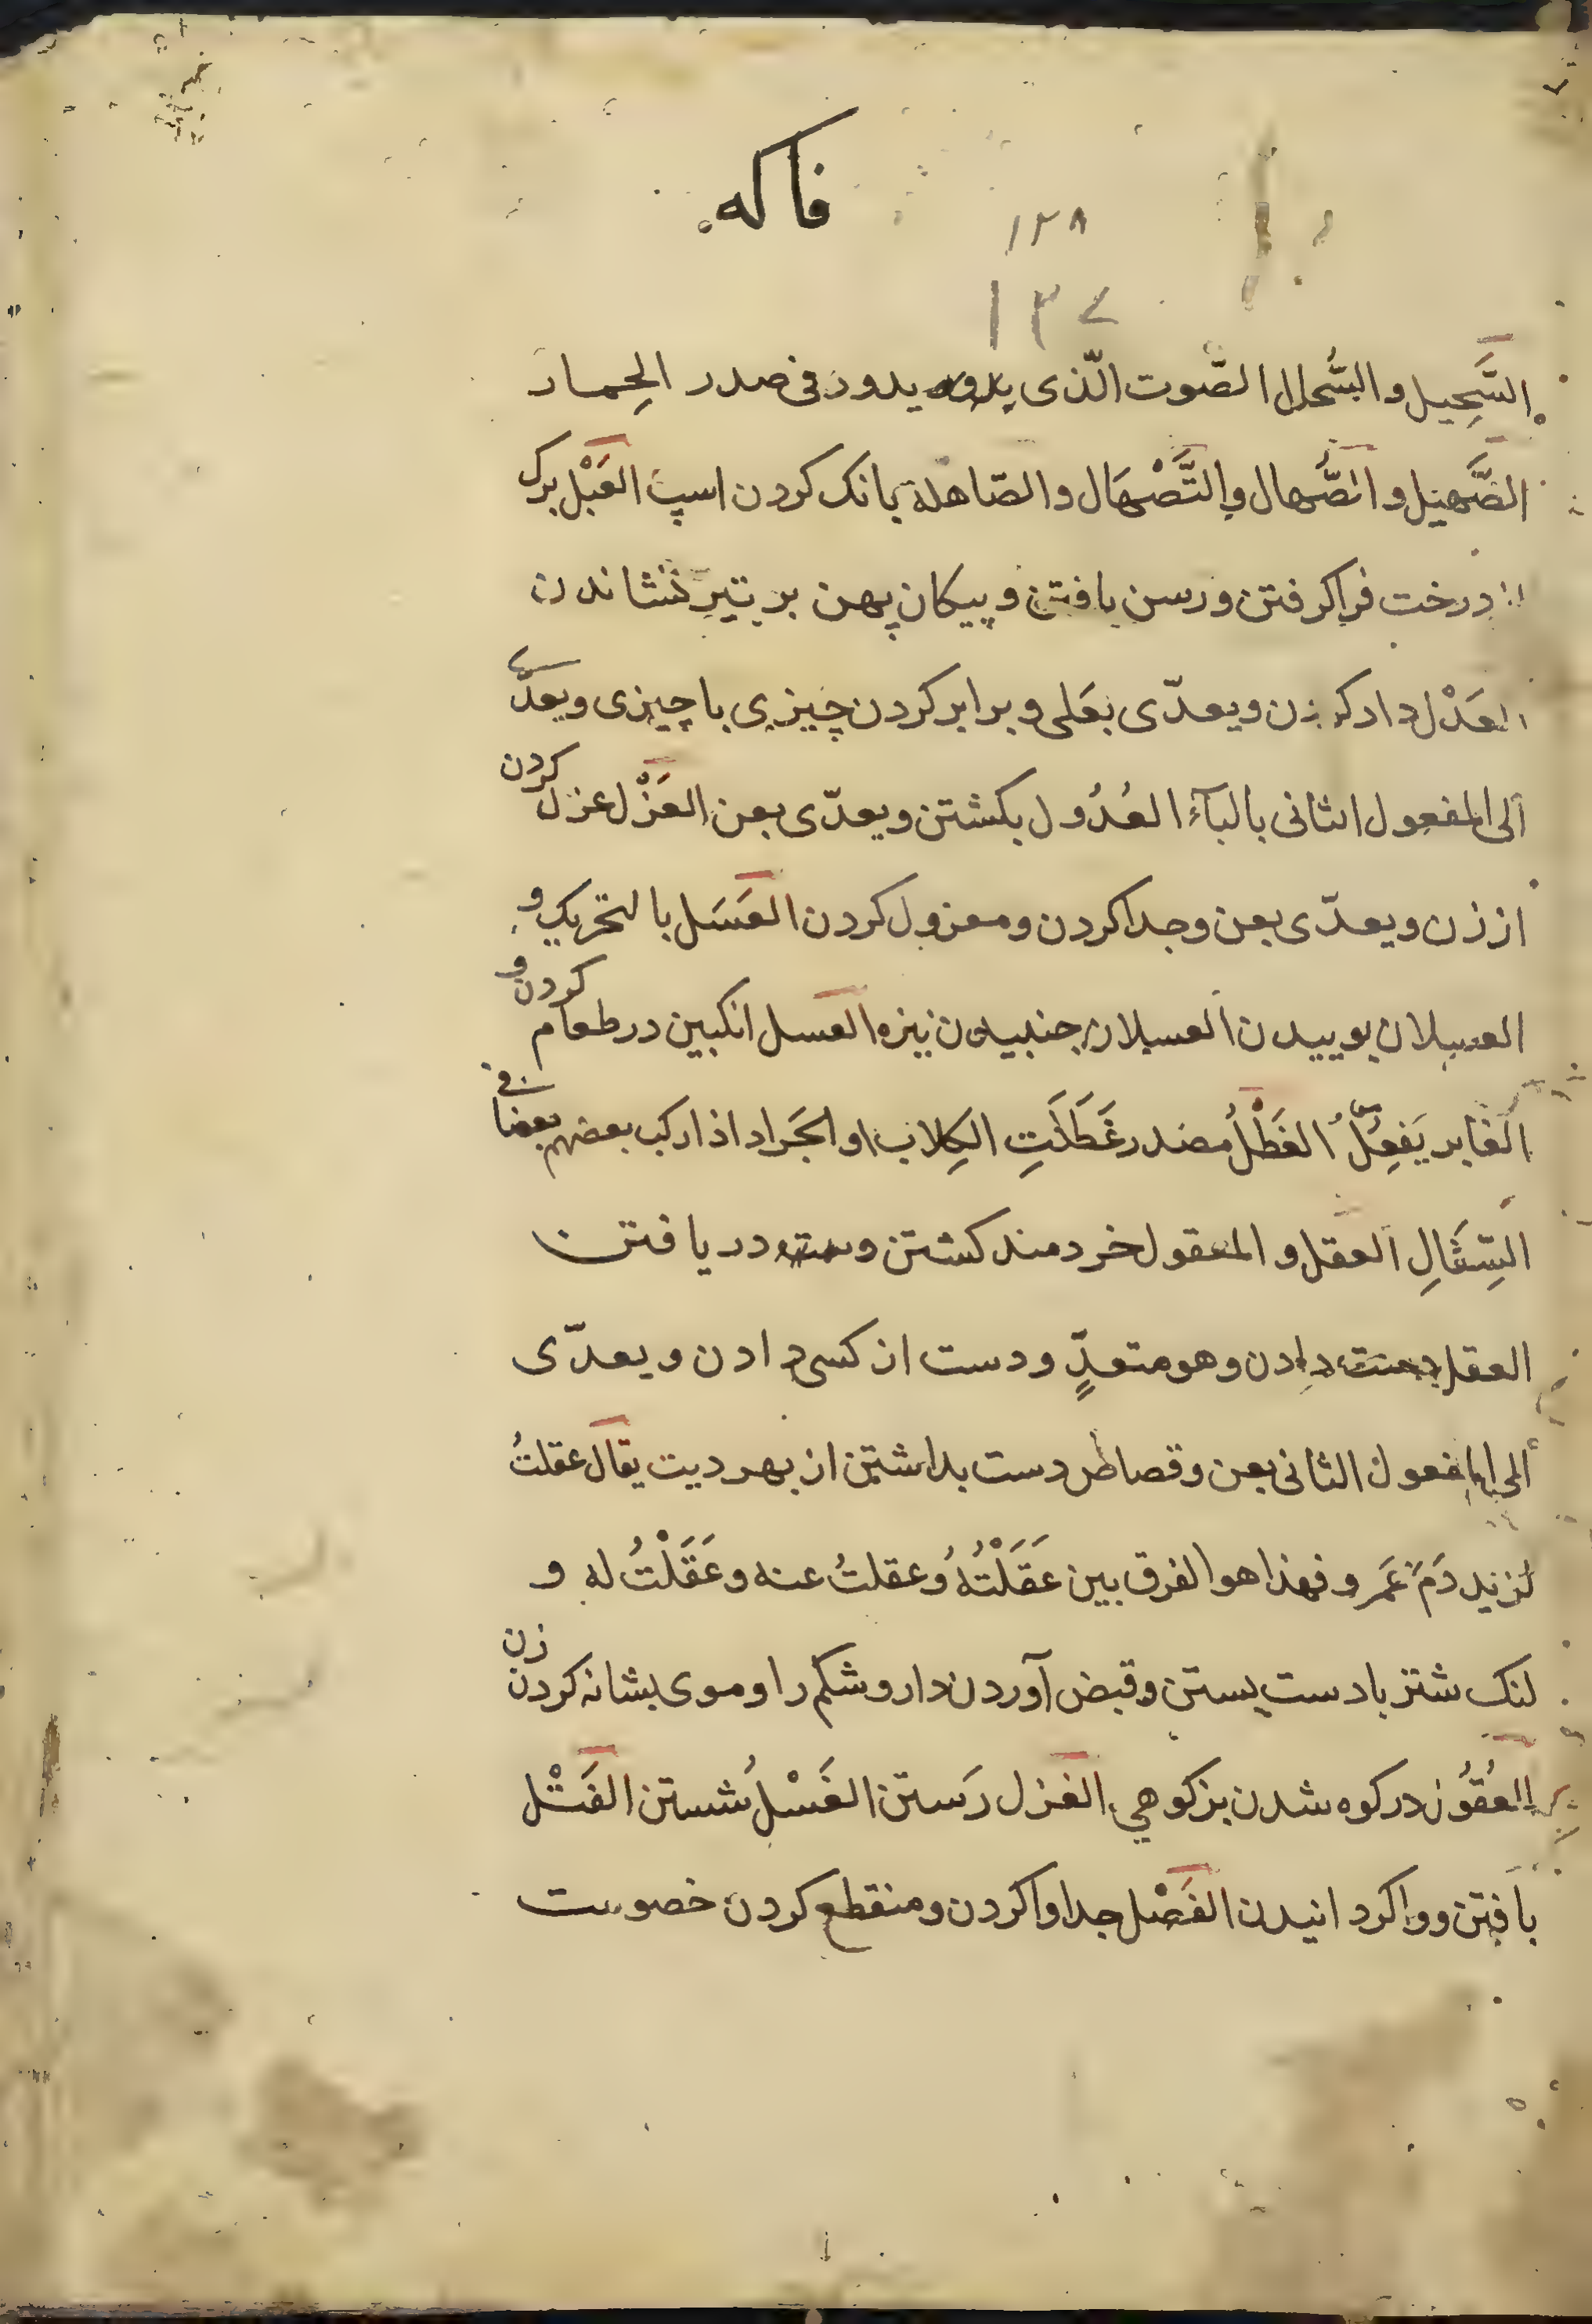 فاکه
۱۲۸
۱۳۷
السَّحِيل والسُّحال الصّوت الّذى يدور فى صدر الحِمار
الصَّهِيل والصُّهال والتَّصْهَال والصّاهلة بانک کردن اسپ العَبْل برک
از درخت فراکرفتن ورسن بافتن و پیکان پهن بر تیر نشاندن
العَدْل داد کردن ويعدّى بعَلى وبرابر کردن چیزی با چیزی ويعدّى
الى المفعول الثانى بالبآء العُدُول بکشتن ويعدّى بعن العَزْل عزل کردن
از زن ويعدّى بعن وجدا کردن ومعزول کردن العَسَل بالتحريک و
العسلان بوییدن العسلان جنبیدن نیزه العسل انکبین در طعام کردن و
الغابر يَفعِلُ العَظْلُ مصدر عَظَلَتِ الكِلاب او الجَراد اذا ركب بعضهم بعضا فى
السِّفَالِ العقل والمعقول خردمند کشتن و دریافتن
العقل دیت دادن وهو متعدٍّ ودست از کسی دادن ويعدّى
الى المفعول الثانى بعن وقصاص دست بداشتن از بهر دیت يقال عقلتُ
لزيد دَمَ عَمرو فهذا هو الفرق بين عَقَلْتُهُ وعقلتُ عنه وعَقَلْتُ له و
لنک شتر بادست بستن وقبض آوردن دارو شکم را وموی بشانه کردن زن
العُقُول در کوه شدن بز کوهی الغزل رَستن الغَسْلُ شستن الفَتْل
بافتن وواکردانیدن الفَصْل جدا واکردن ومنقطع کردن خصومت